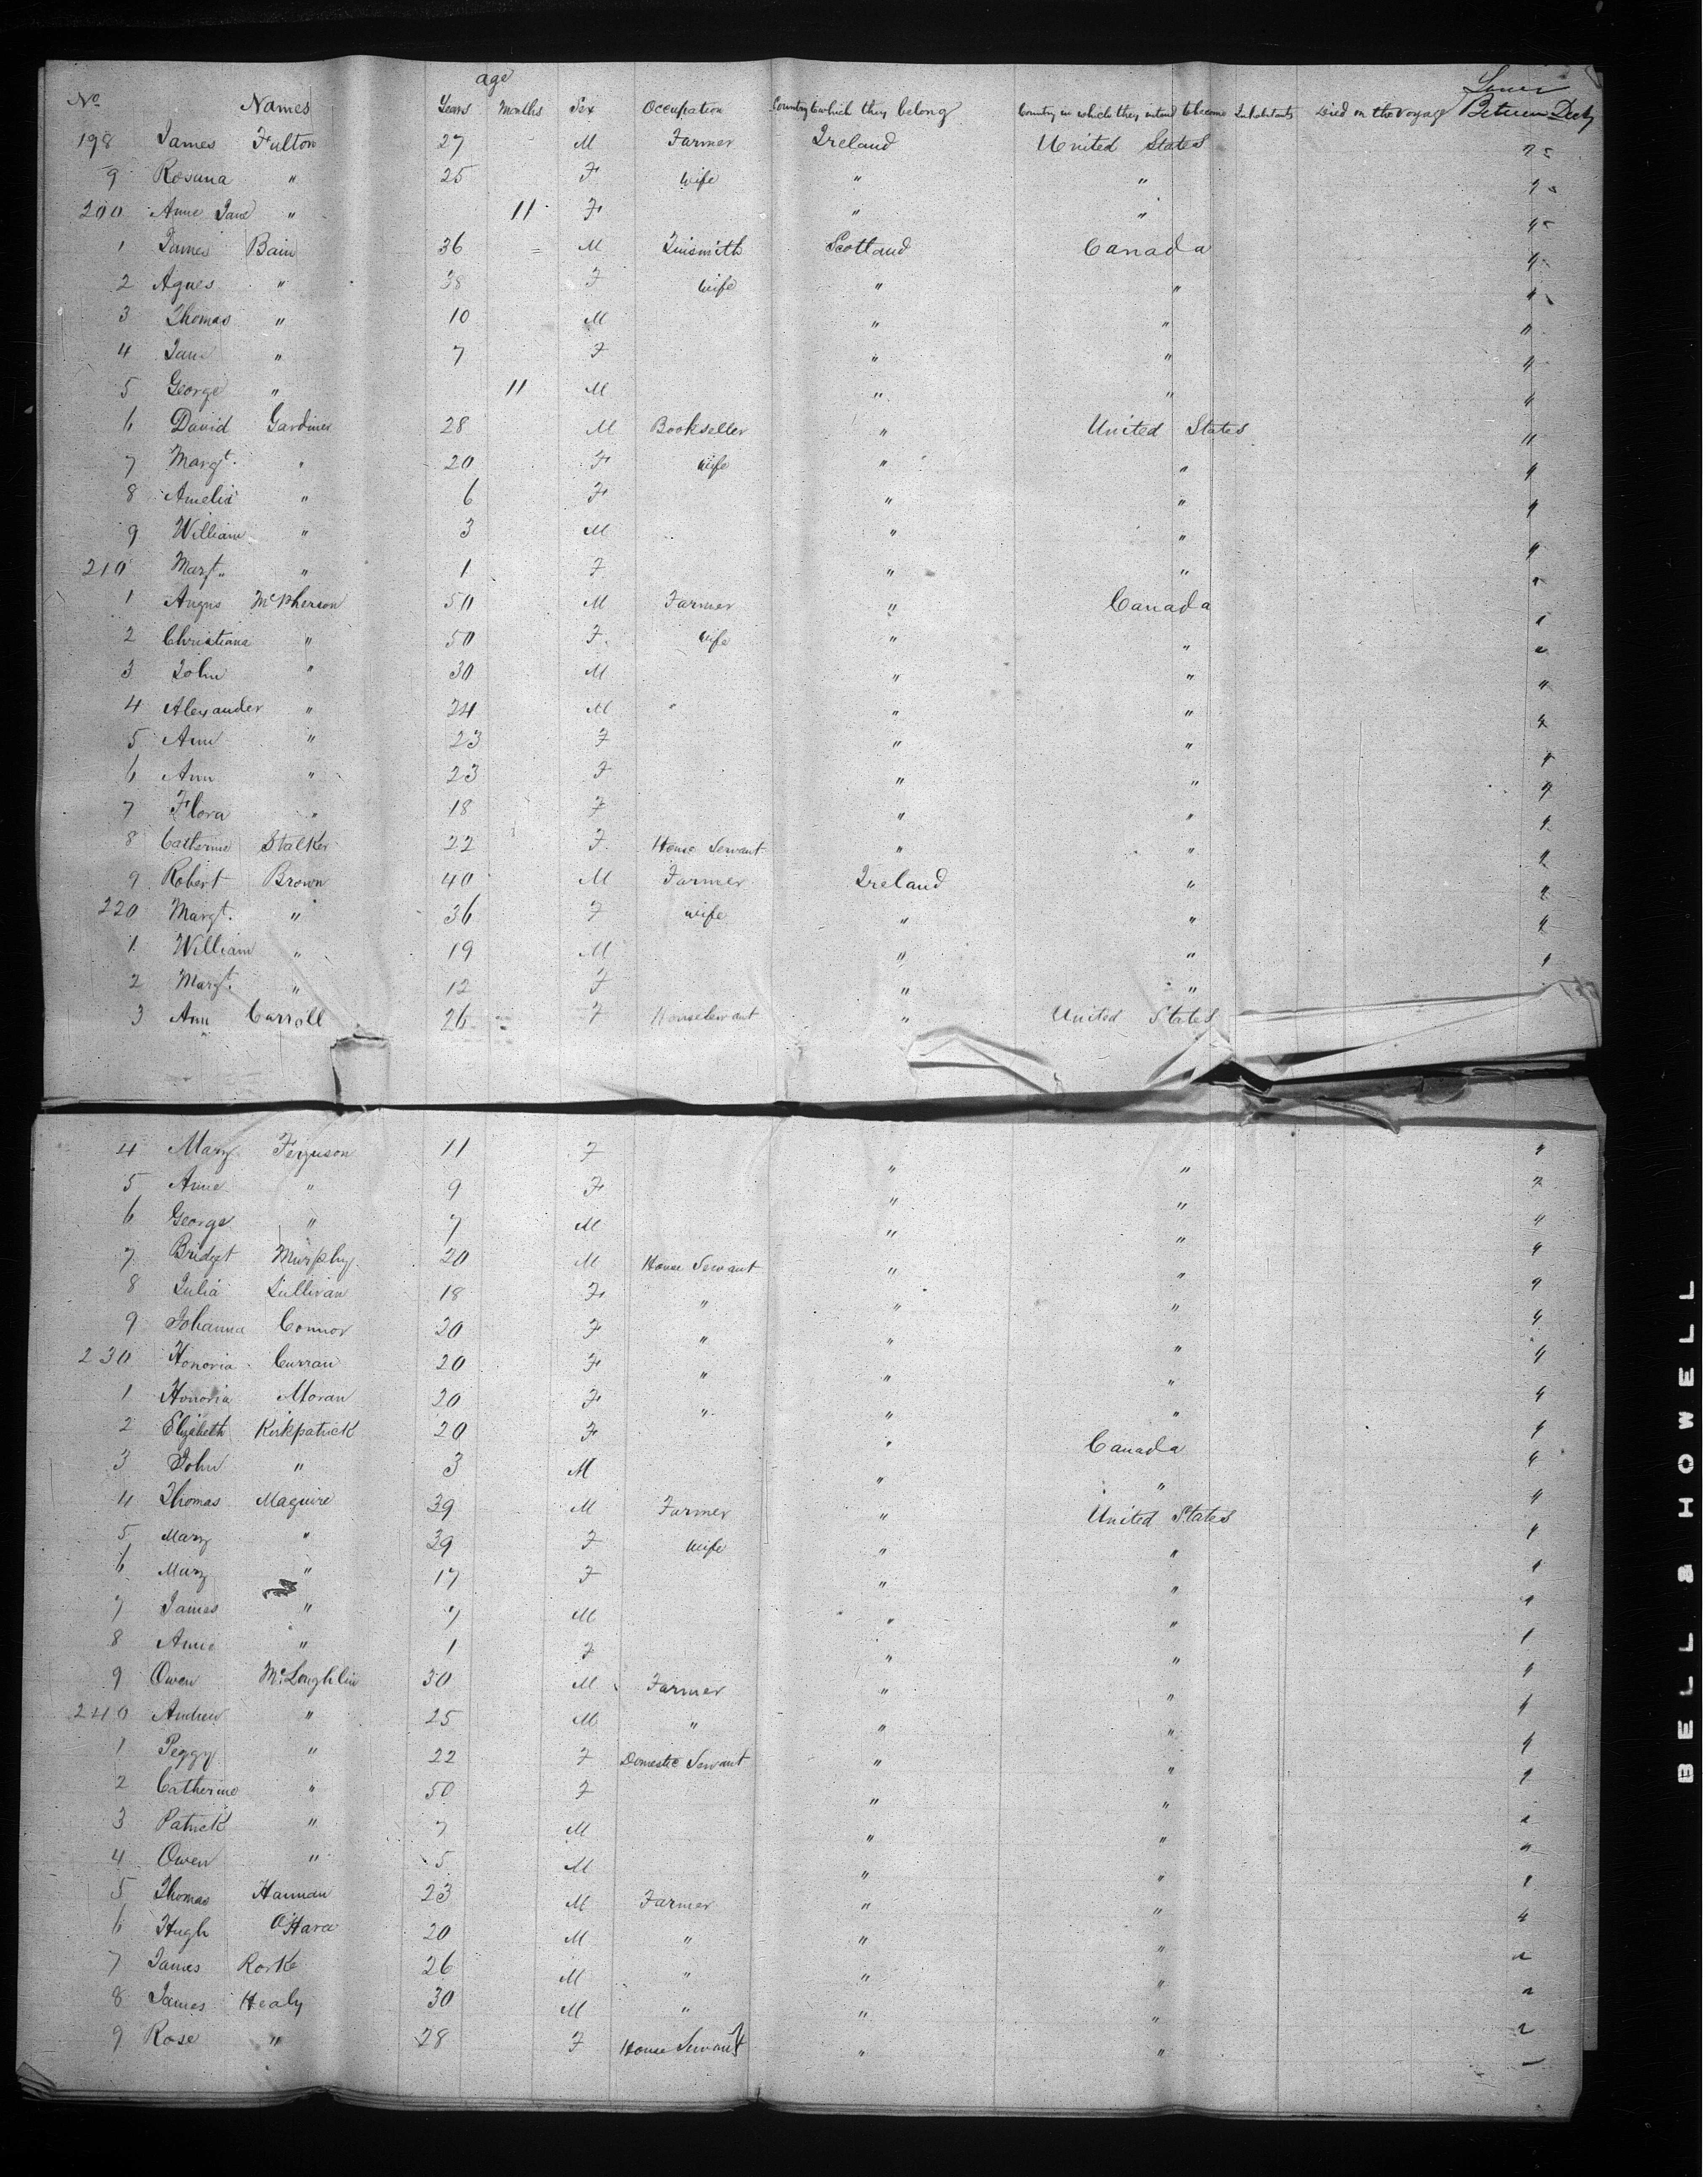 age Lower
No Names Years Months Sex Occupation Country to which they belong Country in which they intend to become Inhabitants Died on the Voyage Between Decks
198 James Fulton 27 M Farmer Ireland United States "
9 Rosana " 25 F Wife " " "
200 Anne Jane " 11 F " " "
1 James Bain 36 = M Tinsmith Scotland Canada "
2 Agnes " 38 F Wife " " "
3 Thomas " 10 M " " "
4 Jane " 7 F " " "
5 George " 11 M " " "
6 David Gardiner 28 M Bookseller " United States "
7 Margt. " 20 F Wife " " "
8 Amelia " 6 F " " "
9 William " 3 M " " "
210 Margt. " 1 F " " "
1 Angus McPherson 50 M Farmer " Canada "
2 Christiana " 50 F. Wife " " "
3 John " 30 M " " "
4 Alexander " 24 M " " " "
5 Ann " 23 F " " "
6 Ann " 23 F " " "
7 Flora " 18 F " " "
8 Catherine Stalker 22 F. House Servant " " "
9 Robert Brown 40 M Farmer Ireland " "
220 Margt. " 36 F wife " " "
1 William " 19 M " " "
2 Margt. " 12 F " " "
3 Ann Carroll 26 F House Servant " United States
4 Mary Ferguson 11 F " " "
5 Anne " 9 F " " "
6 George " 7 M " " "
7 Bridget Murphy 20 M House Servant " " "
8 Julia Sullivan 18 F " " " "
9 Johanna Connor 20 F " " " "
230 Honoria Curran 20 F " " " "
1 Honoria Moran 20 F " " " "
2 Elizabeth Kirkpatrick 20 F " Canada "
3 John " 3 M " " "
4 Thomas Maguire 39 M Farmer " United States "
5 Mary " 39 F Wife " " "
6 Mary " 17 F " " "
7 James " 7 M " " "
8 Anne " 1 F " " "
9 Owen McLoughlin 30 M Farmer " " "
240 Andrew " 25 M " " " "
1 Peggy " 22 F Domestic Servant " " "
2 Catherine " 50 F " " "
3 Patrick " 7 M " " "
4 Owen " 5 M " " "
5 Thomas Hannan 23 M Farmer " " "
6 Hugh O'Hara 20 M " " " "
7 James Rorke 26 M " " " "
8 James Healy 30 M " " " "
9 Rose " 28 F House Servant " "
BELL & HOWELL